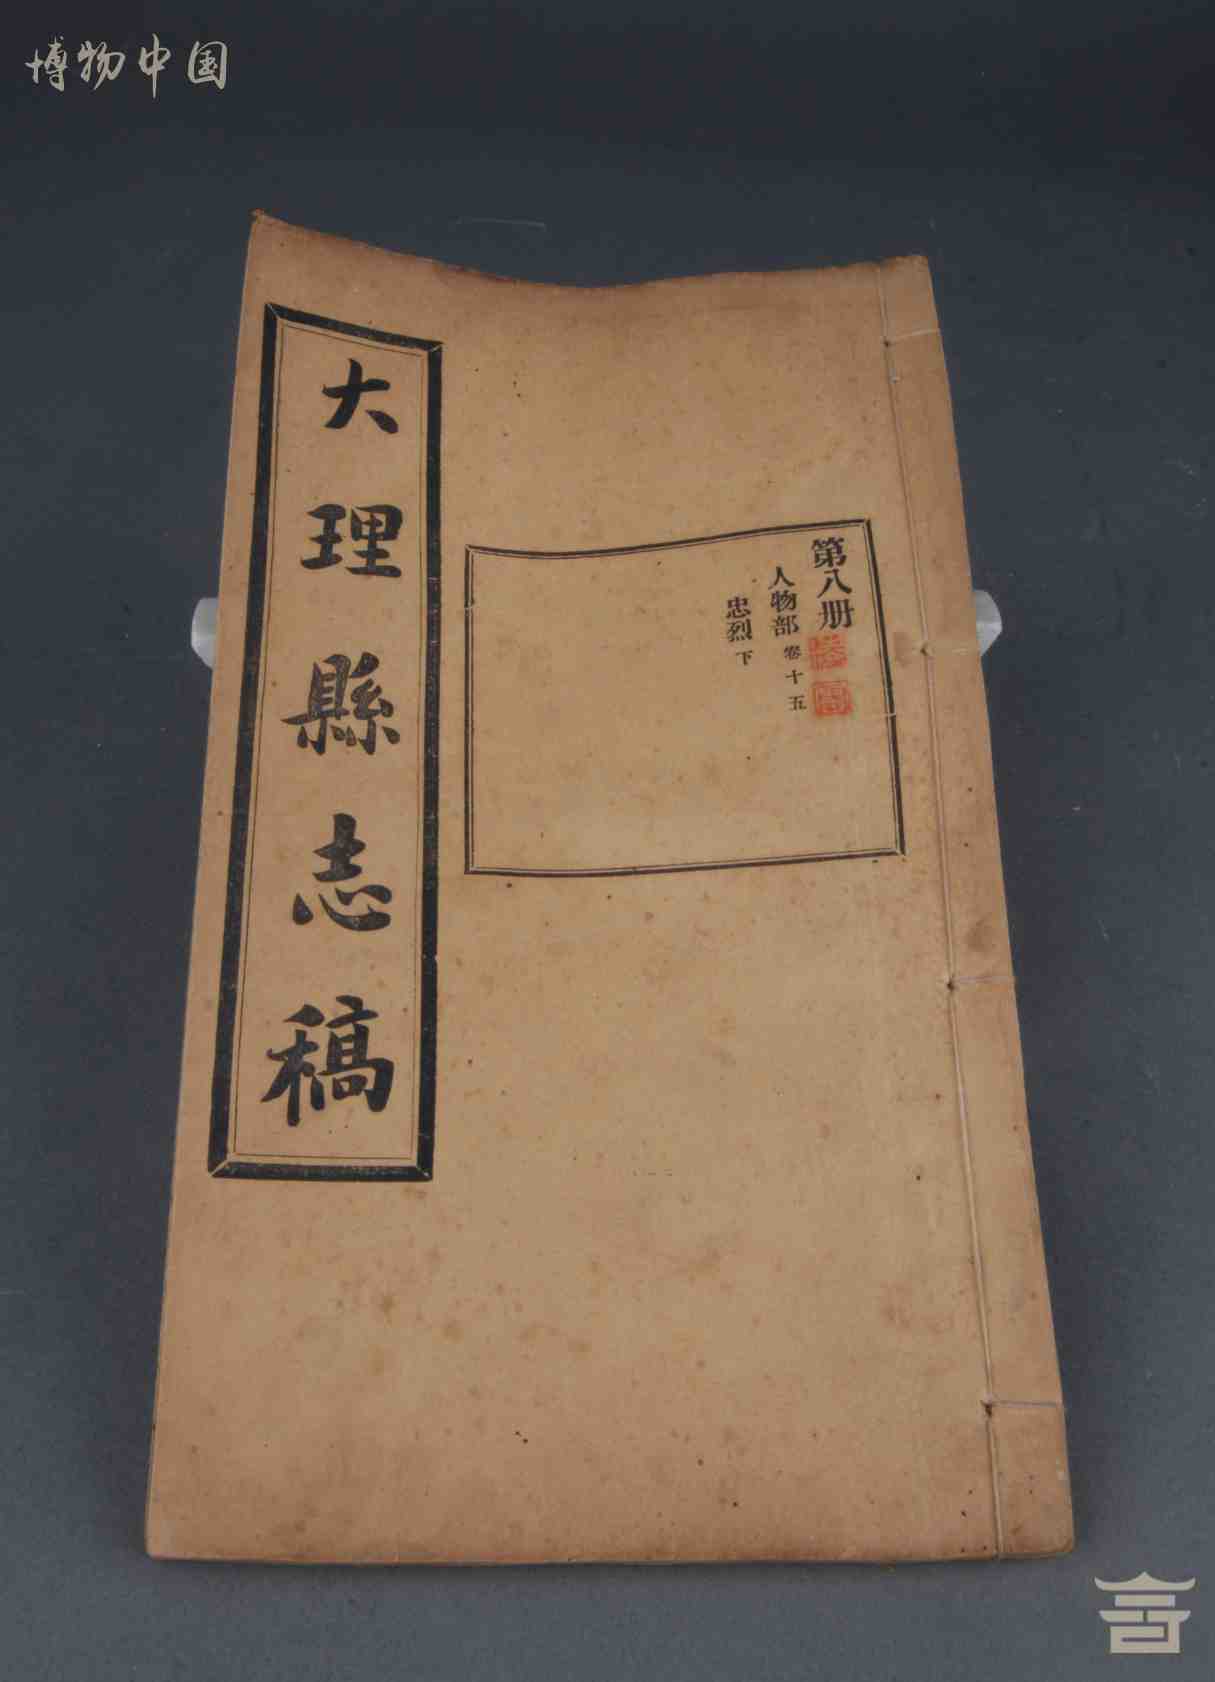 博物中国
大理縣志稿
第八册
人物部 卷十五
忠烈 下